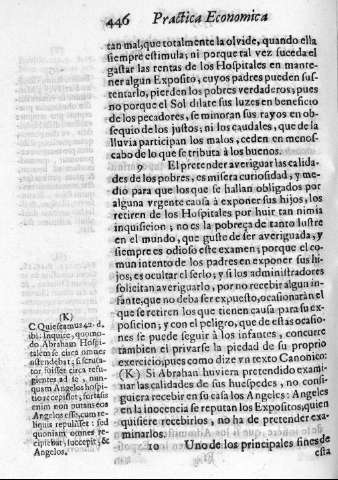 446 Practica Economica
tan mal, que totalmente la olvide, quando ella
siempre estimula; ni porque tal vez suceda el
gastar las rentas de los Hospitales en mante-
ner algun Exposito, cuyos padres pueden sus-
tentarlo, pierden los pobres verdaderos; pues
no porque el Sol dilate sus luzes en beneficio
de los pecadores, se minoran sus rayos en ob-
sequio de los justos; ni los caudales, que de la
lluvia participan los malos, ceden en menos-
cabo de lo que se tributa à los buenos.
9 El pretender averiguar las calida-
des de los pobres, es misera curiosidad, y me-
dio para que los que se hallan obligados por
alguna vrgente causa à exponer sus hijos, los
retiren de los Hospitales por huir tan nimia
inquisicion; no es la pobreça de tanto lustre
en el mundo, que guste de ser averiguada, y
siempre es odioso este examen; porque el co-
mun intento de los padres en exponer sus hi-
jos, es ocultar el serlo; y si los administradores
solicitan averiguarlo, por no recebir algun in-
fante, que no deba ser expuesto, ocasionaràn el
que se retiren los que tienen causa para su ex-
posicion, y con el peligro, que de estas ocasio-
nes se puede seguir à los infantes, concurre
tambien el privarse la piedad de su proprio
exercicio; pues como dize vn texto Canonico:
(K) Si Abrahan huviera pretendido exami-
nar las calidades de sus huespedes, no consi-
guiera recebir en su casa los Angeles: Angeles
en la inocencia se reputan los Expositos, quien
quisiere recebirlos, no ha de pretender exa-
minarlos.
10 Uno de los principales fines de
esta
(K)
C. Quiescamus 42. d.
ibi. Inquire, quomo-
do Abrahan Hospi-
talem se circa omnes
ostendebat; si scruta-
tor fuisset circa refu-
gientes ad se, nun-
quam Angelos hospi-
tio recepisset, fortasis
enim non putans eos
Angelos esse, cum re-
liquis repulisset: sed
quoniam omnes re-
cipiebat, succepit, &
Angelos.